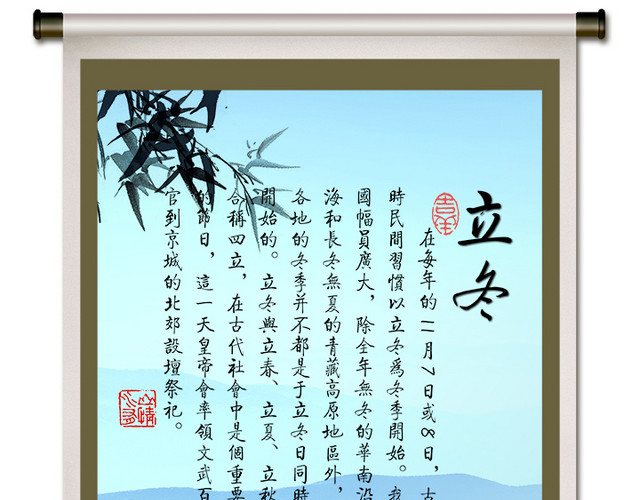 立冬
吉羊
在每年的11月7日或8日，古
時民間習慣以立冬爲冬季開始。我
國幅員廣大，除全年無冬的華南沿
海和長冬無夏的青藏高原地區外，
各地的冬季并不都是于立冬日同時
開始的。立冬與立春、立夏、立秋
合稱四立，在古代社會中是個重要
的節日，這一天皇帝會率領文武百
官到京城的北郊設壇祭祀。